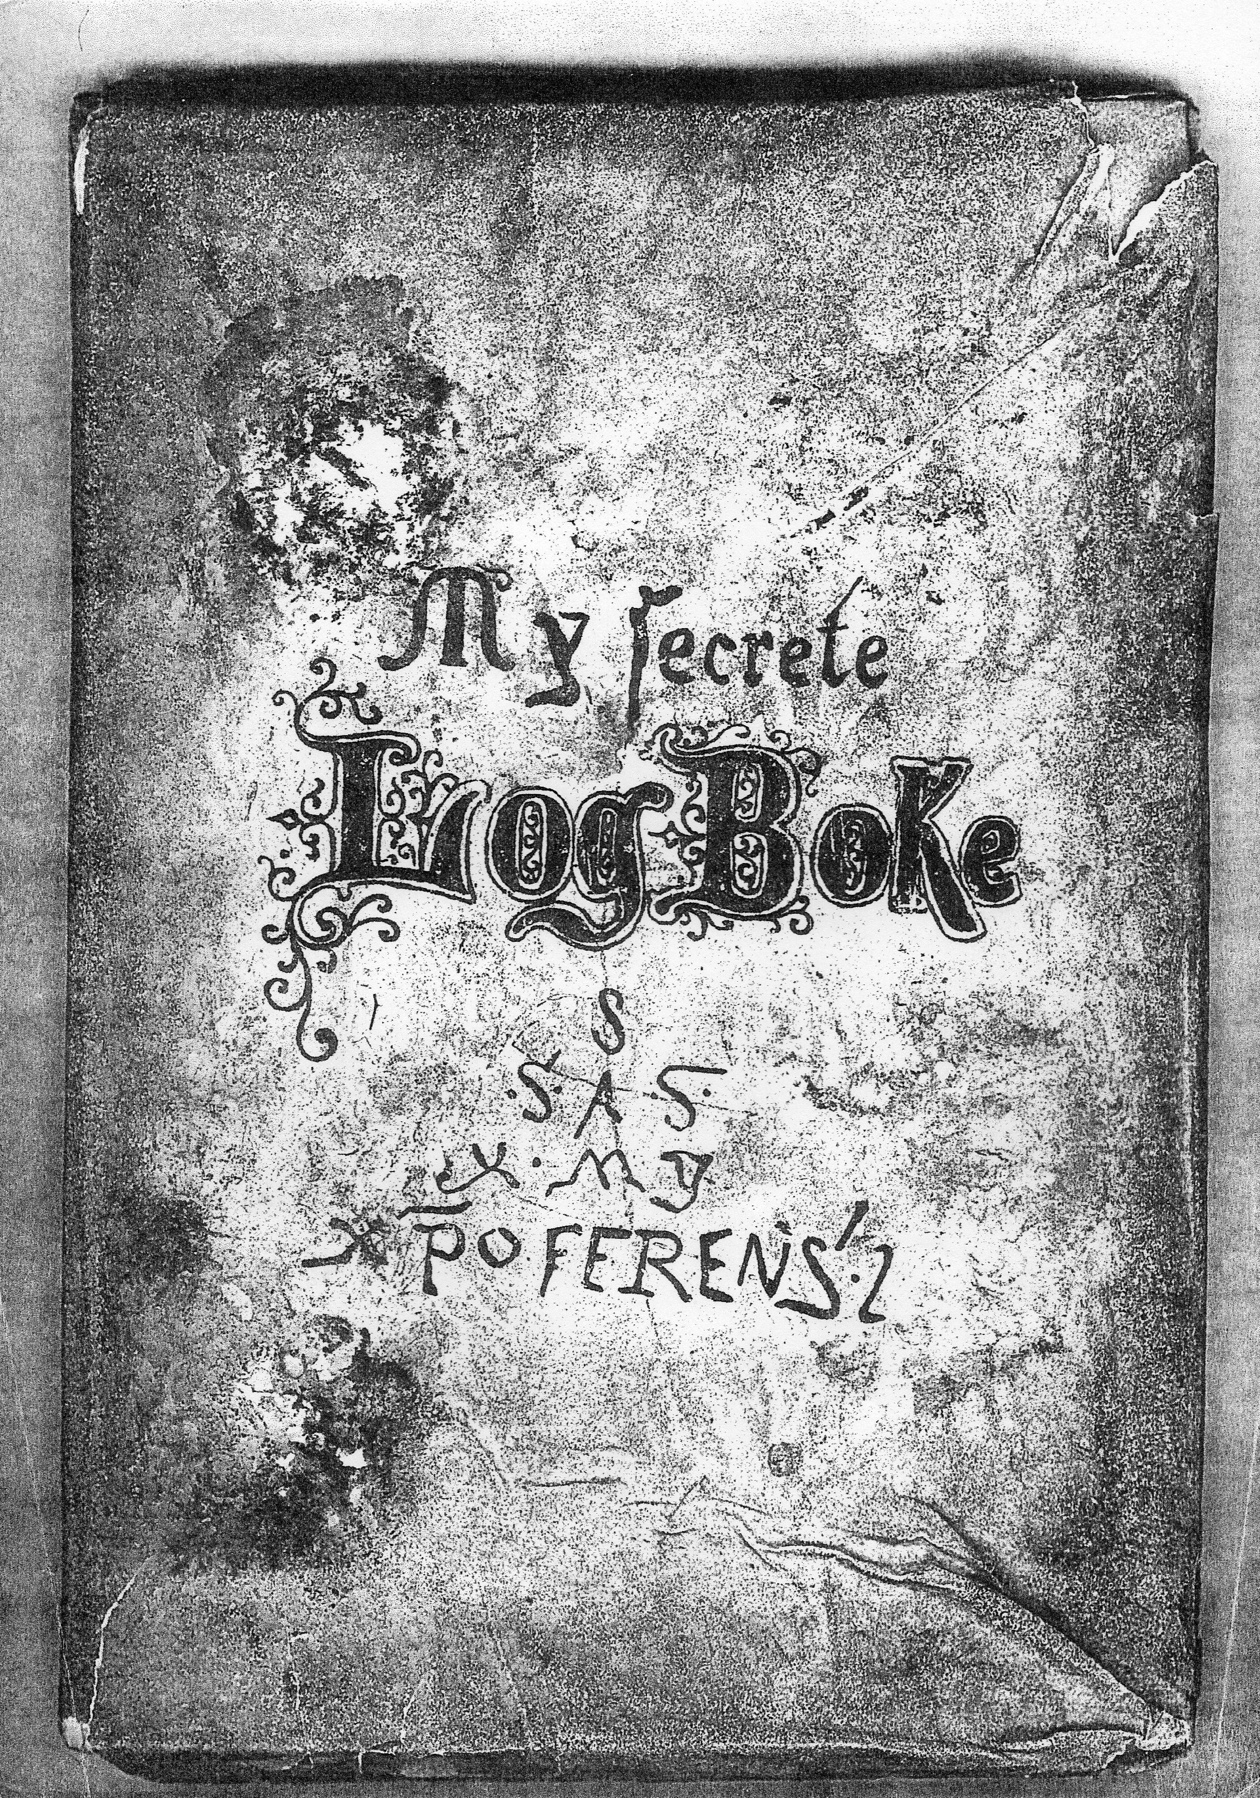 My ſecrete
Log Boke
S
·S· A ·S·
X · M Y
X̄PO FERENS'·2